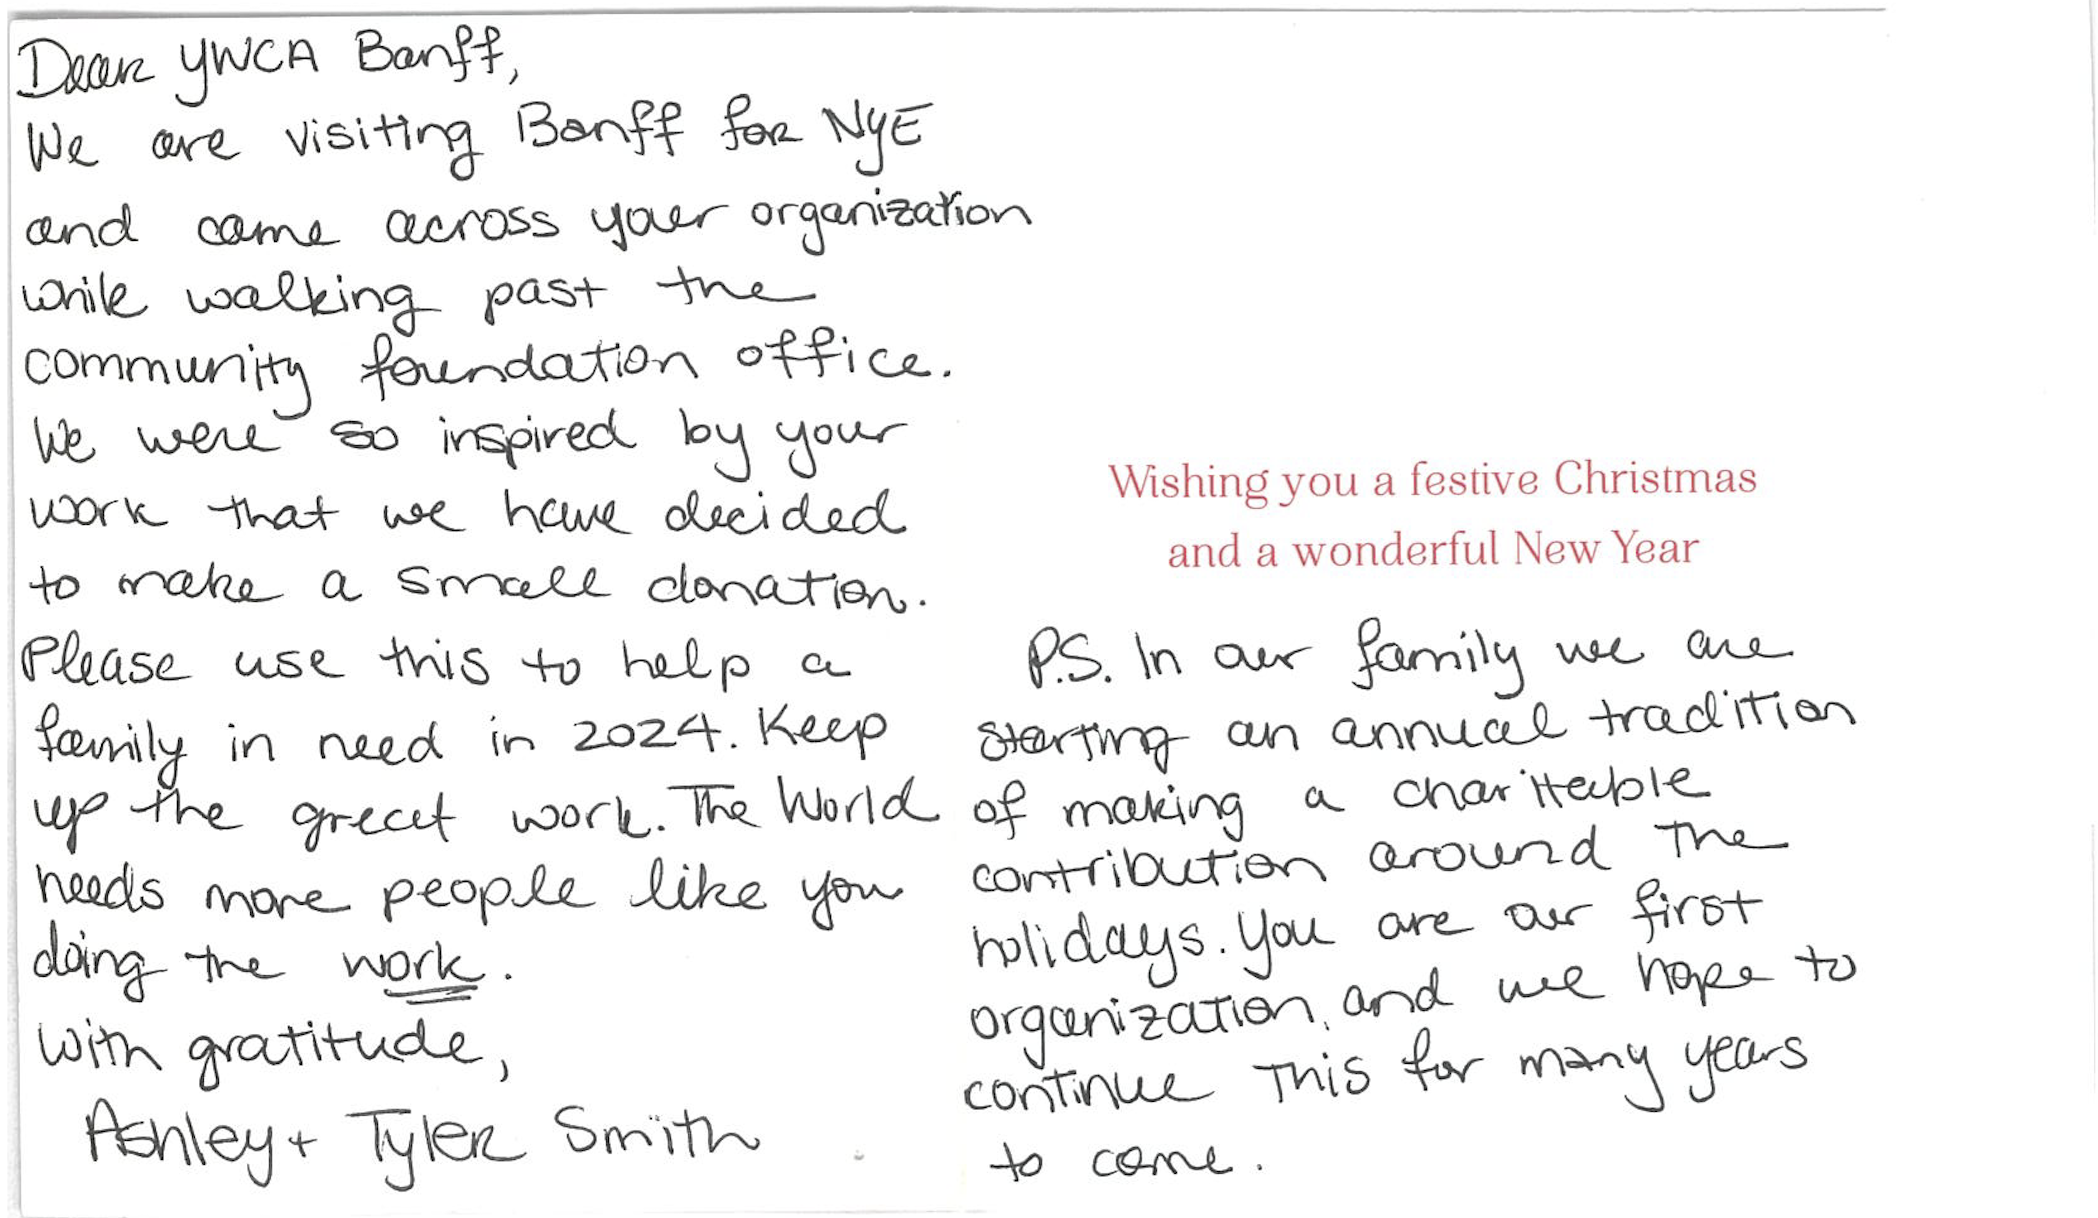 Dear YWCA Banff,
We are visiting Banff for NYE
and came across your organization
while walking past the
community foundation office.
We were so inspired by your
work that we have decided
to make a small donation.
Please use this to help a
family in need in 2024. Keep
up the great work. The World
needs more people like you
doing the work.
With gratitude,
Ashley + Tyler Smith
Wishing you a festive Christmas
and a wonderful New Year
P.S. In our family we are
starting an annual tradition
of making a charitable
contribution around the
holidays. You are our first
organization, and we hope to
continue this for many years
to come.